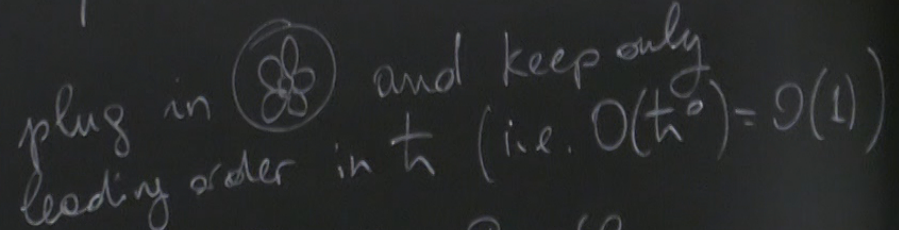 plug in and keep only
leading order in ħ (i.e. O(ħ⁰) = O(1))